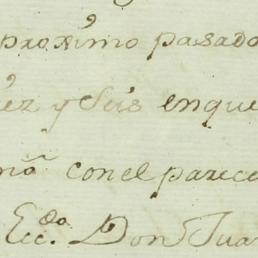 proximo pasado
y Seis enque
con el parece
Ecc.do Don Jua